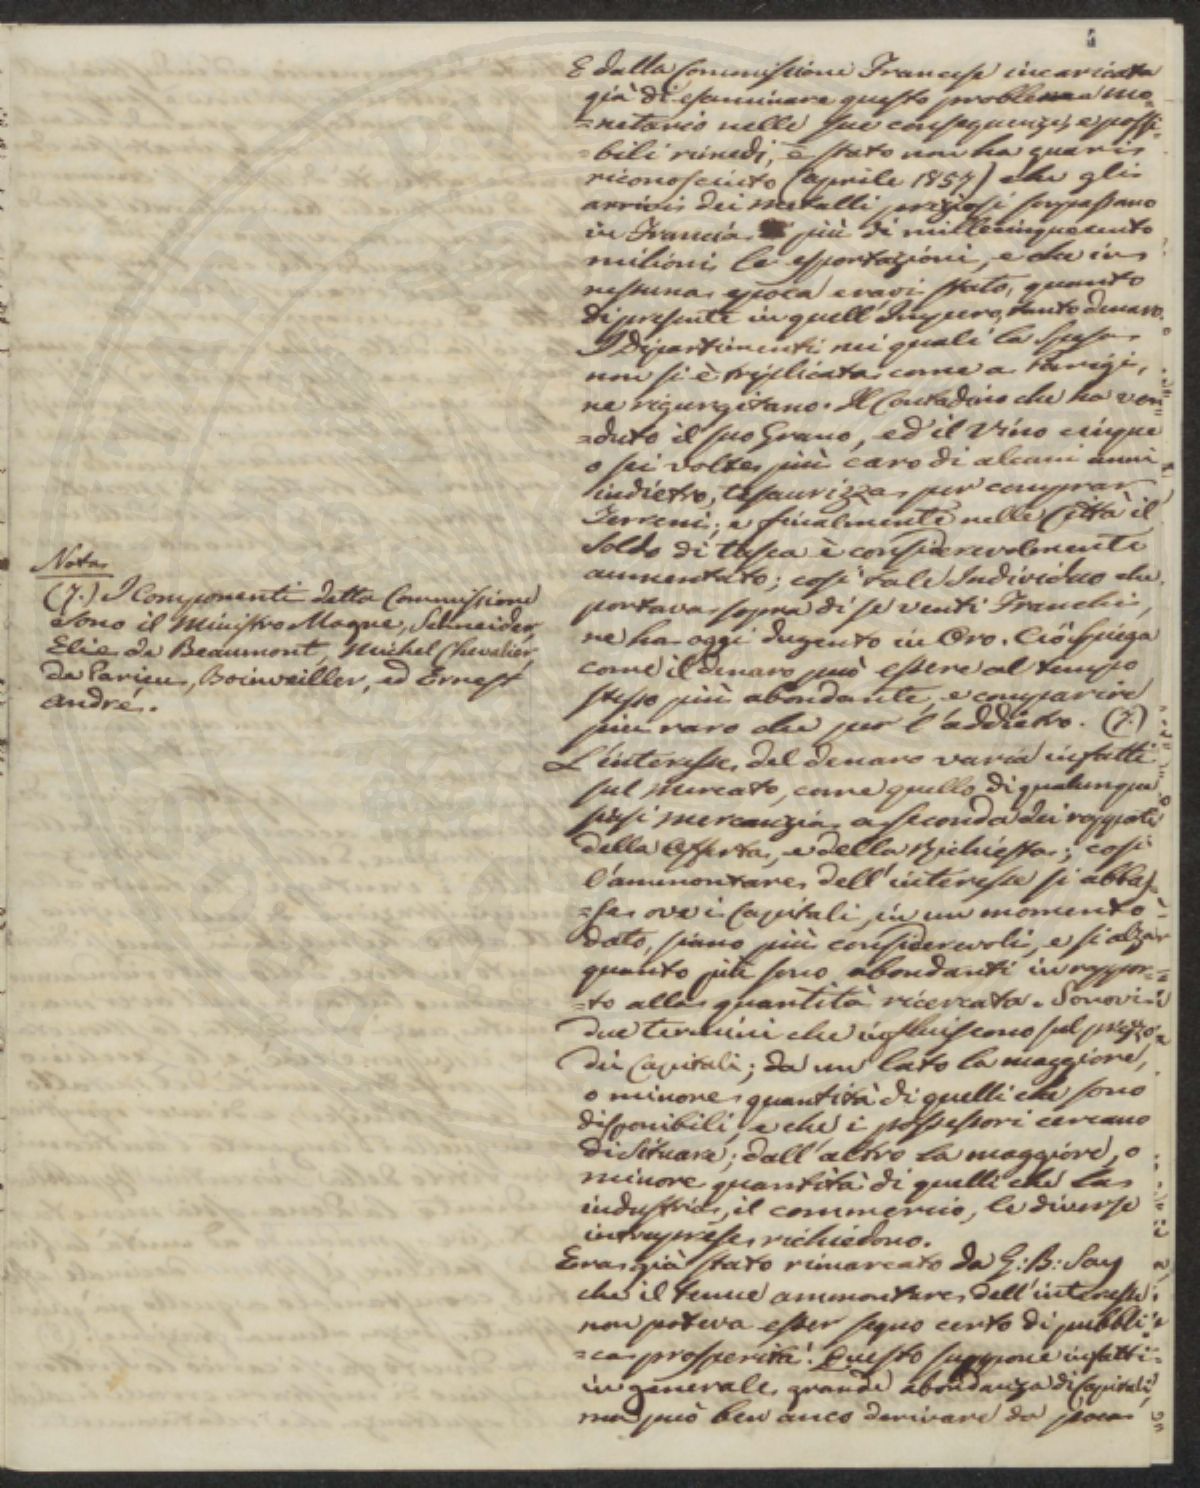 E dalla Commissione Francese incaricata
già di esaminare questo problema mo=
=netario nelle sue conseguenze, e possi=
=bili rimedi, è stato non ha guari
riconosciuto (aprile 1857) che gli
arrivi dei metalli preziosi sorpassano
in Francia più di millecinquecento
milioni le esportazioni, e che in
nessuna epoca eravi stato, quanto
di presente in quell'Impero, tanto denaro.
I Dipartimenti nei quali la Spesa
non si è triplicata come a Parigi,
ne rigurgitano. Il Contadino che ha ven=
=duto il suo Grano, ed il Vino cinque
o sei volte più caro di alcuni anni
indietro, tesaurizza per comprar
Terreni; e finalmente nelle Città il
Soldo di tasca è considerevolmente
aumentato; così tale Individuo che
portava sopra di se venti Franchi,
ne ha oggi dugento in Oro. Ciò spiega
come il denaro può essere al tempo
stesso più abondante, e comparire
più raro che per l'addietro. (7.)
L'interesse del denaro varia infatti
sul mercato, come quello di qualunque
siasi mercanzia a seconda dei rapporti
della Offerta, e della Richiesta; così
l'ammontare dell'interesse si abbas=
=sa ove i Capitali, in un momento
dato, siano più considerevoli, e si alza
quanto più sono abondanti in rappor=
=to alla quantità ricercata. Sonovi
due termini che influiscono sul prezzo
dei Capitali; da un lato la maggiore,
o minore quantità di quelli che sono
disponibili, e che i possessori cercano
di situare; dall'altro la maggiore, o
minore quantità di quelli che la
industria, il commercio, le diverse
intraprese richiedono.
Era già stato rimarcato da G: B: Say
che il tenue ammontare dell'interesse
non poteva esser segno certo di pubbli=
=ca prosperità. Questo suppone infatti
in generale grande abondanza di Capitali,
ma può ben anco derivare da poca
Nota
(7.) I Componenti detta Commissione
sono il Ministro Magne, Schneider,
Elie de Beaumont, Michel Chevalier,
de Parieu, Boinvilliers, ed Ernest
André.